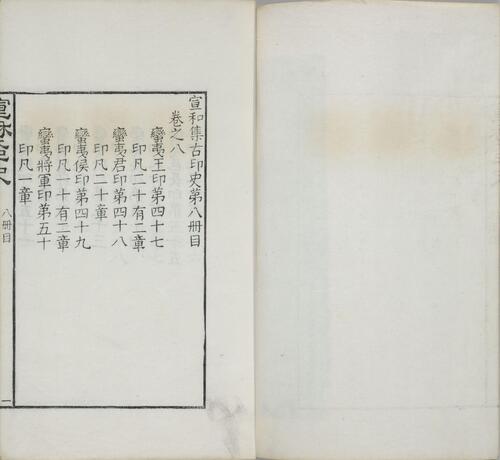 宣和集古印史第八冊目
卷之八
蠻夷王印第四十七
印凡二十有二章
蠻夷君印第四十八
印凡二十章
蠻夷侯印第四十九
印凡一十有二章
蠻夷將軍印第五十
印凡一章
八冊目
一